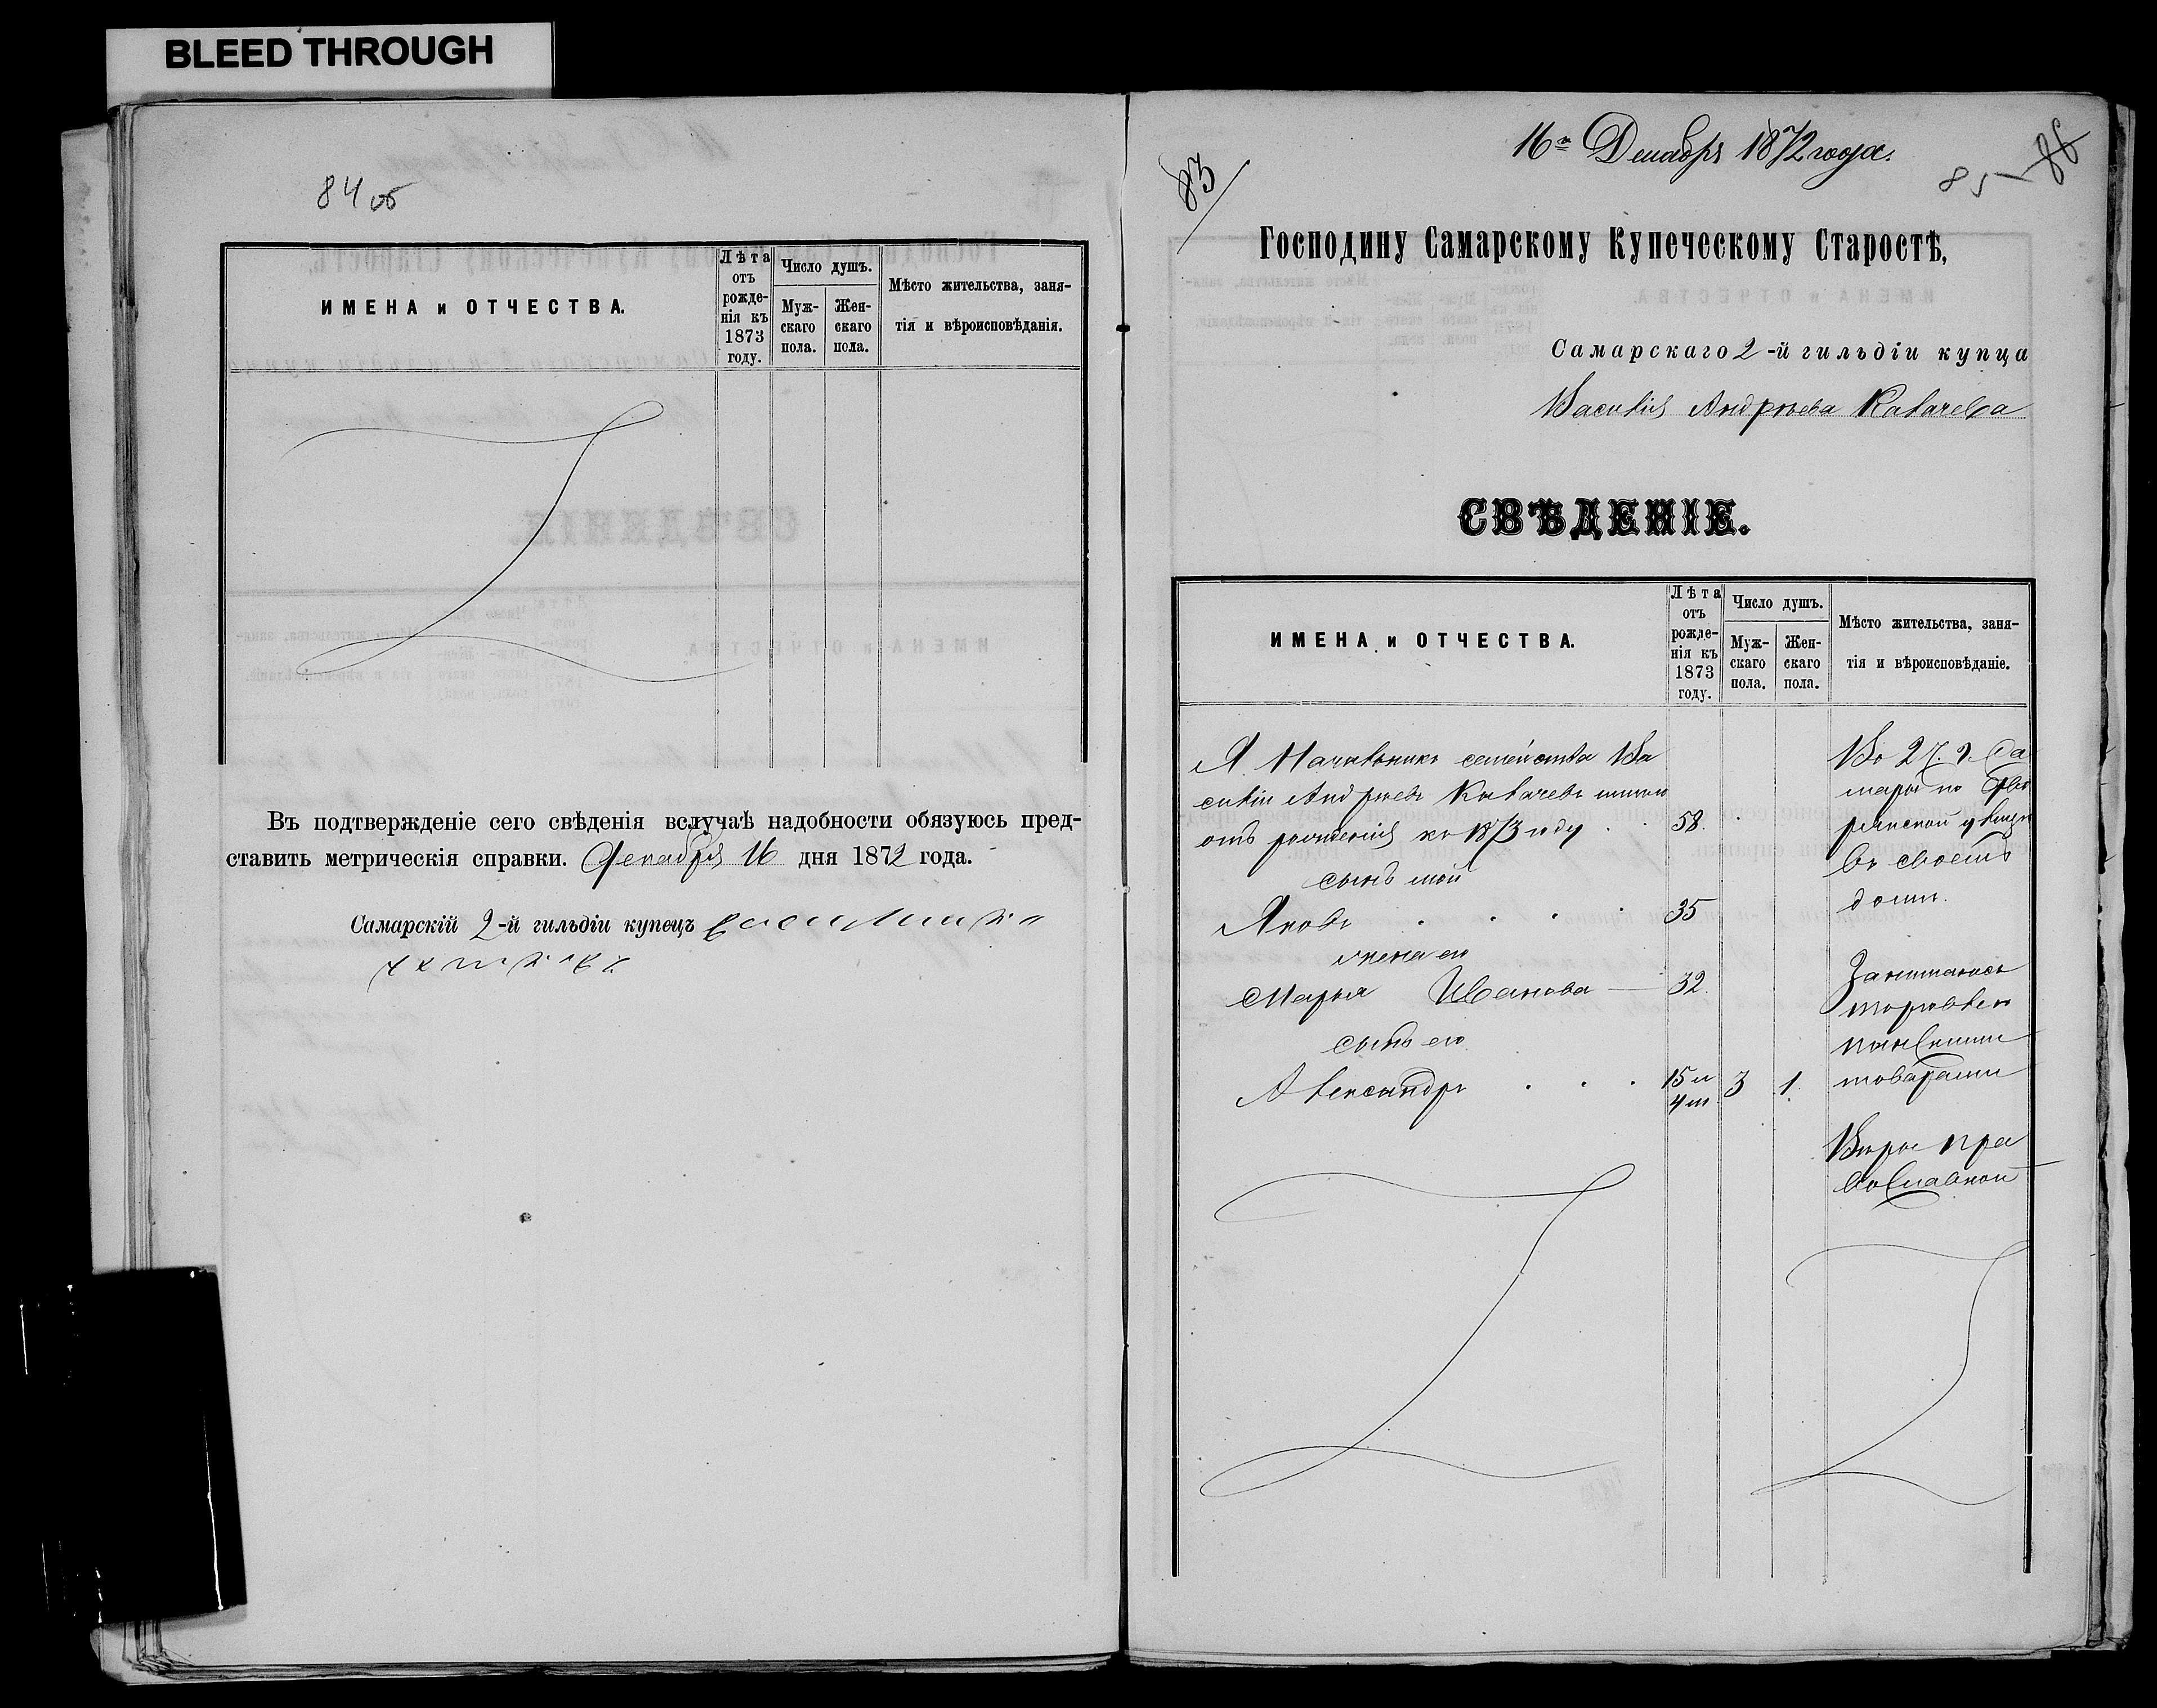 BLEED THROUGH
84 об
ИМЕНА и ОТЧЕСТВА.
Лѣта отъ рожде-нія къ 1873 году.
Число душъ.
Муж-скаго пола.
Жен-скаго пола.
Мѣсто жительства, заня-
тія и вѣроисповѣданія.
Въ подтвержденіе сего свѣденія вслучаѣ надобности обязуюсь пред-
ставить метрическія справки. Декабря 16 дня 1872 года.
Самарскій 2-й гильдіи купецъ
16го Декабря 1872 года.
83
85 86
Господину Самарскому Купеческому Старостѣ,
Самарскаго 2-й гильдіи купца
Василія Андреева Калачева
СВѢДЕНІЕ.
ИМЕНА и ОТЧЕСТВА.
Лѣта отъ рожде-нія къ 1873 году.
Число душъ.
Муж-скаго пола.
Жен-скаго пола.
Мѣсто жительства, заня-
тія и вѣроисповѣданіе.
Я Начальникъ семейства Ва
силій Андреевъ Калачевъ
отъ рожденія къ 1873 году 58.
сынъ мой
Яковъ 35
жена его
Марья Иванова 32.
сынъ его
Александръ 15 и 4 м 3 1.
Во 2 Ч. г. Са
мары по Дво
рянской улицѣ
въ своемъ
доме.
Занимаюсь
торговлею
товарами
Веры пра
вославной